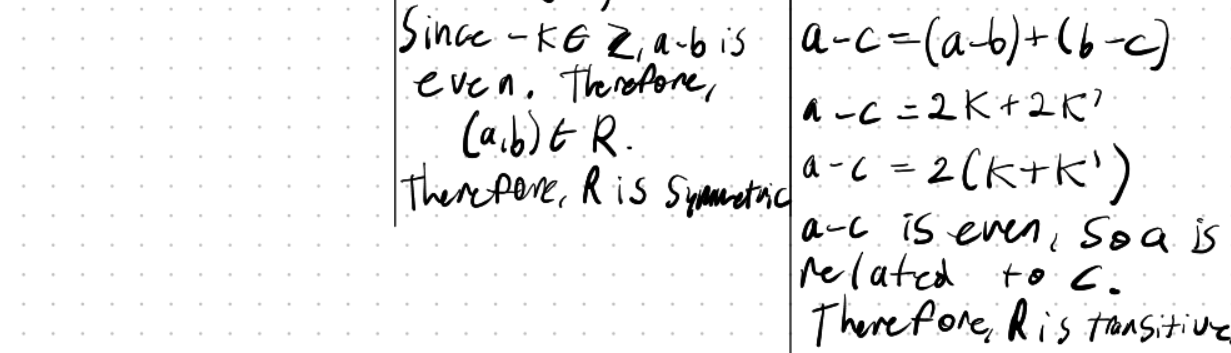 Since -K∈ Z, a-b is
even. Therefore,
(a,b) ∈ R.
Therefore, R is Symmetric
a-c=(a-b)+(b-c)
a-c=2K+2K'
a-c = 2(K+K')
a-c is even, so a is
related to c.
Therefore, R is transitive